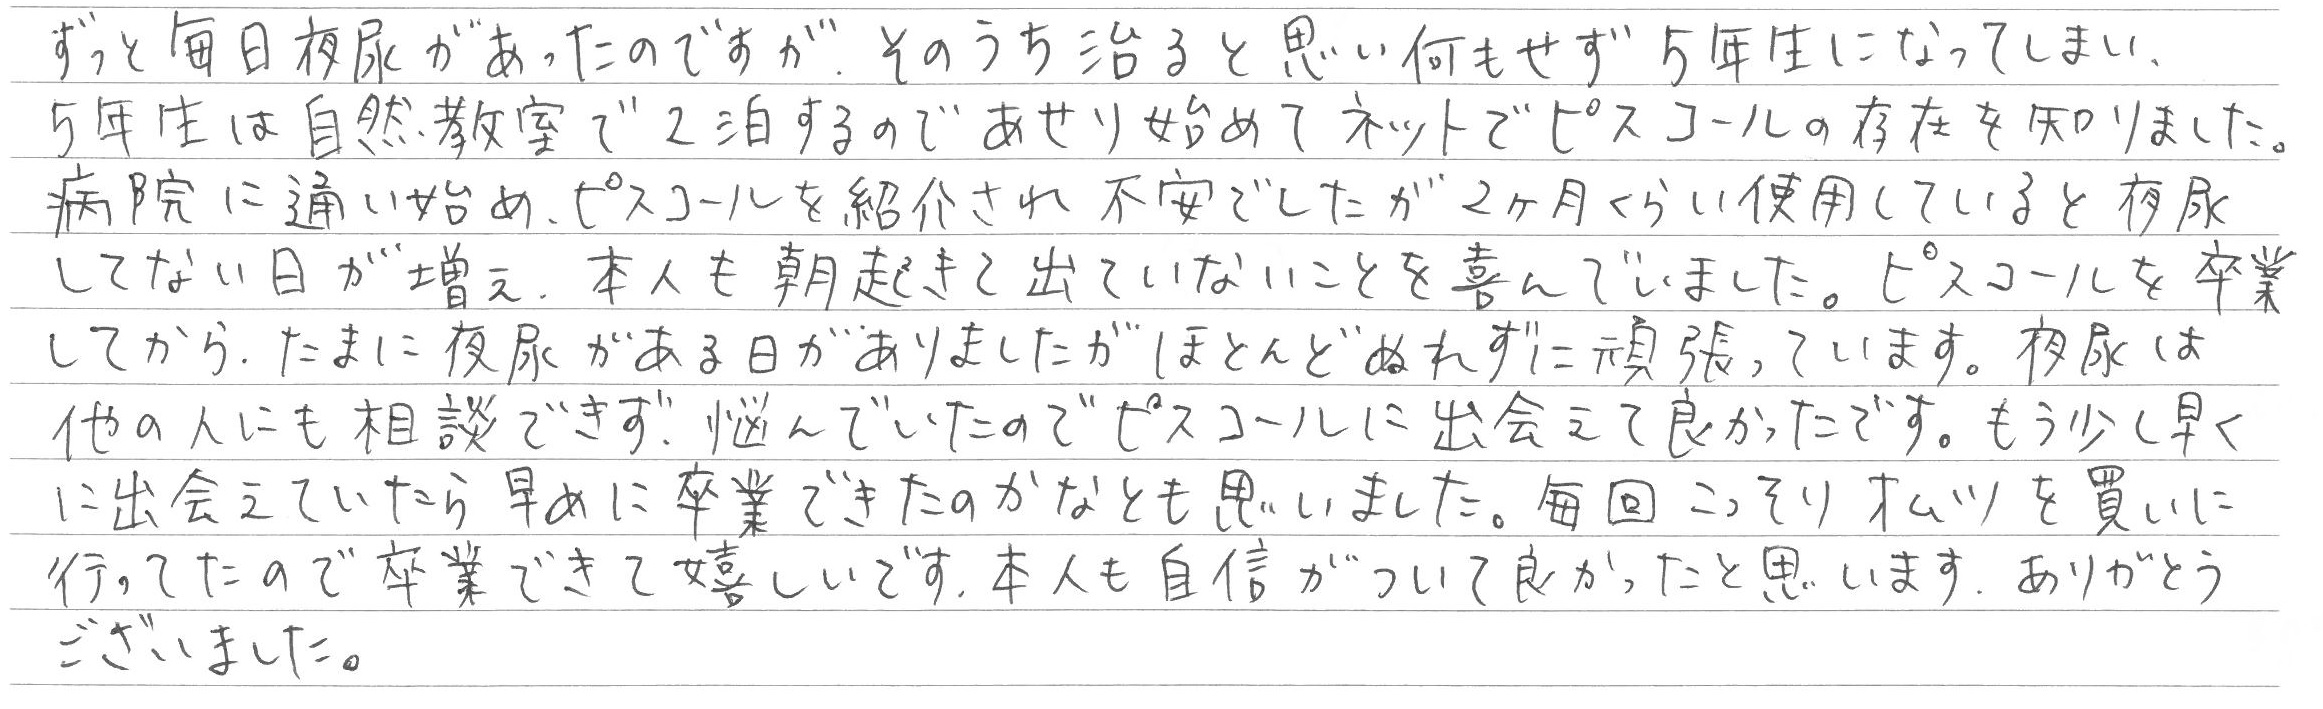 ずっと毎日夜尿があったのですが、そのうち治ると思い何もせず5年生になってしまい、
5年生は自然教室で2泊するのであせり始めてネットでピスコールの存在を知りました。
病院に通い始め、ピスコールを紹介され不安でしたが2ヶ月くらい使用していると夜尿
してない日が増え、本人も朝起きて出ていないことを喜んでいました。ピスコールを卒業
してから、たまに夜尿がある日がありましたがほとんどぬれずに頑張っています。夜尿は
他の人にも相談できず、悩んでいたのでピスコールに出会えて良かったです。もう少し早く
に出会えていたら早めに卒業できたのかなとも思いました。毎回こっそりオムツを買いに
行ってたので卒業できて嬉しいです。本人も自信がついて良かったと思います。ありがとう
ございました。